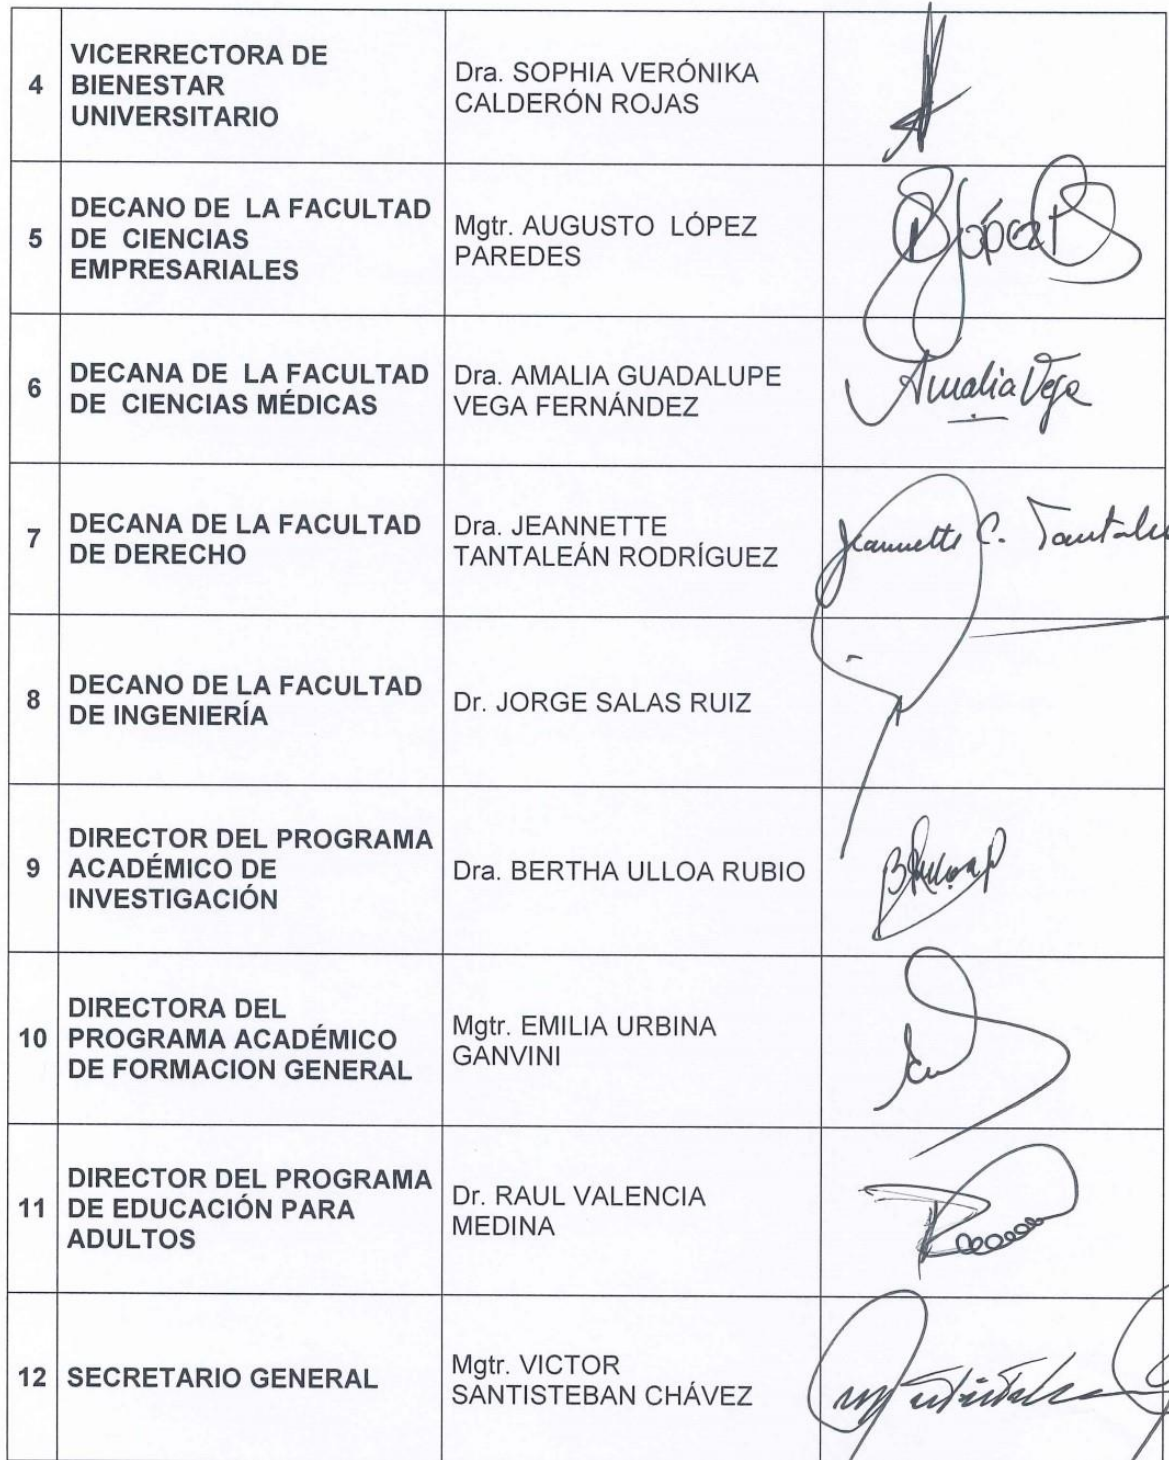 4
VICERRECTORA DE
BIENESTAR
UNIVERSITARIO
Dra. SOPHIA VERÓNIKA
CALDERÓN ROJAS
5
DECANO DE LA FACULTAD
DE CIENCIAS
EMPRESARIALES
Mgtr. AUGUSTO LÓPEZ
PAREDES
López
6
DECANA DE LA FACULTAD
DE CIENCIAS MÉDICAS
Dra. AMALIA GUADALUPE
VEGA FERNÁNDEZ
Amalia Vega
7
DECANA DE LA FACULTAD
DE DERECHO
Dra. JEANNETTE
TANTALEÁN RODRÍGUEZ
Jeannette C. Tantale
8
DECANO DE LA FACULTAD
DE INGENIERÍA
Dr. JORGE SALAS RUIZ
9
DIRECTOR DEL PROGRAMA
ACADÉMICO DE
INVESTIGACIÓN
Dra. BERTHA ULLOA RUBIO
10
DIRECTORA DEL
PROGRAMA ACADÉMICO
DE FORMACION GENERAL
Mgtr. EMILIA URBINA
GANVINI
11
DIRECTOR DEL PROGRAMA
DE EDUCACIÓN PARA
ADULTOS
Dr. RAUL VALENCIA
MEDINA
12
SECRETARIO GENERAL
Mgtr. VICTOR
SANTISTEBAN CHÁVEZ